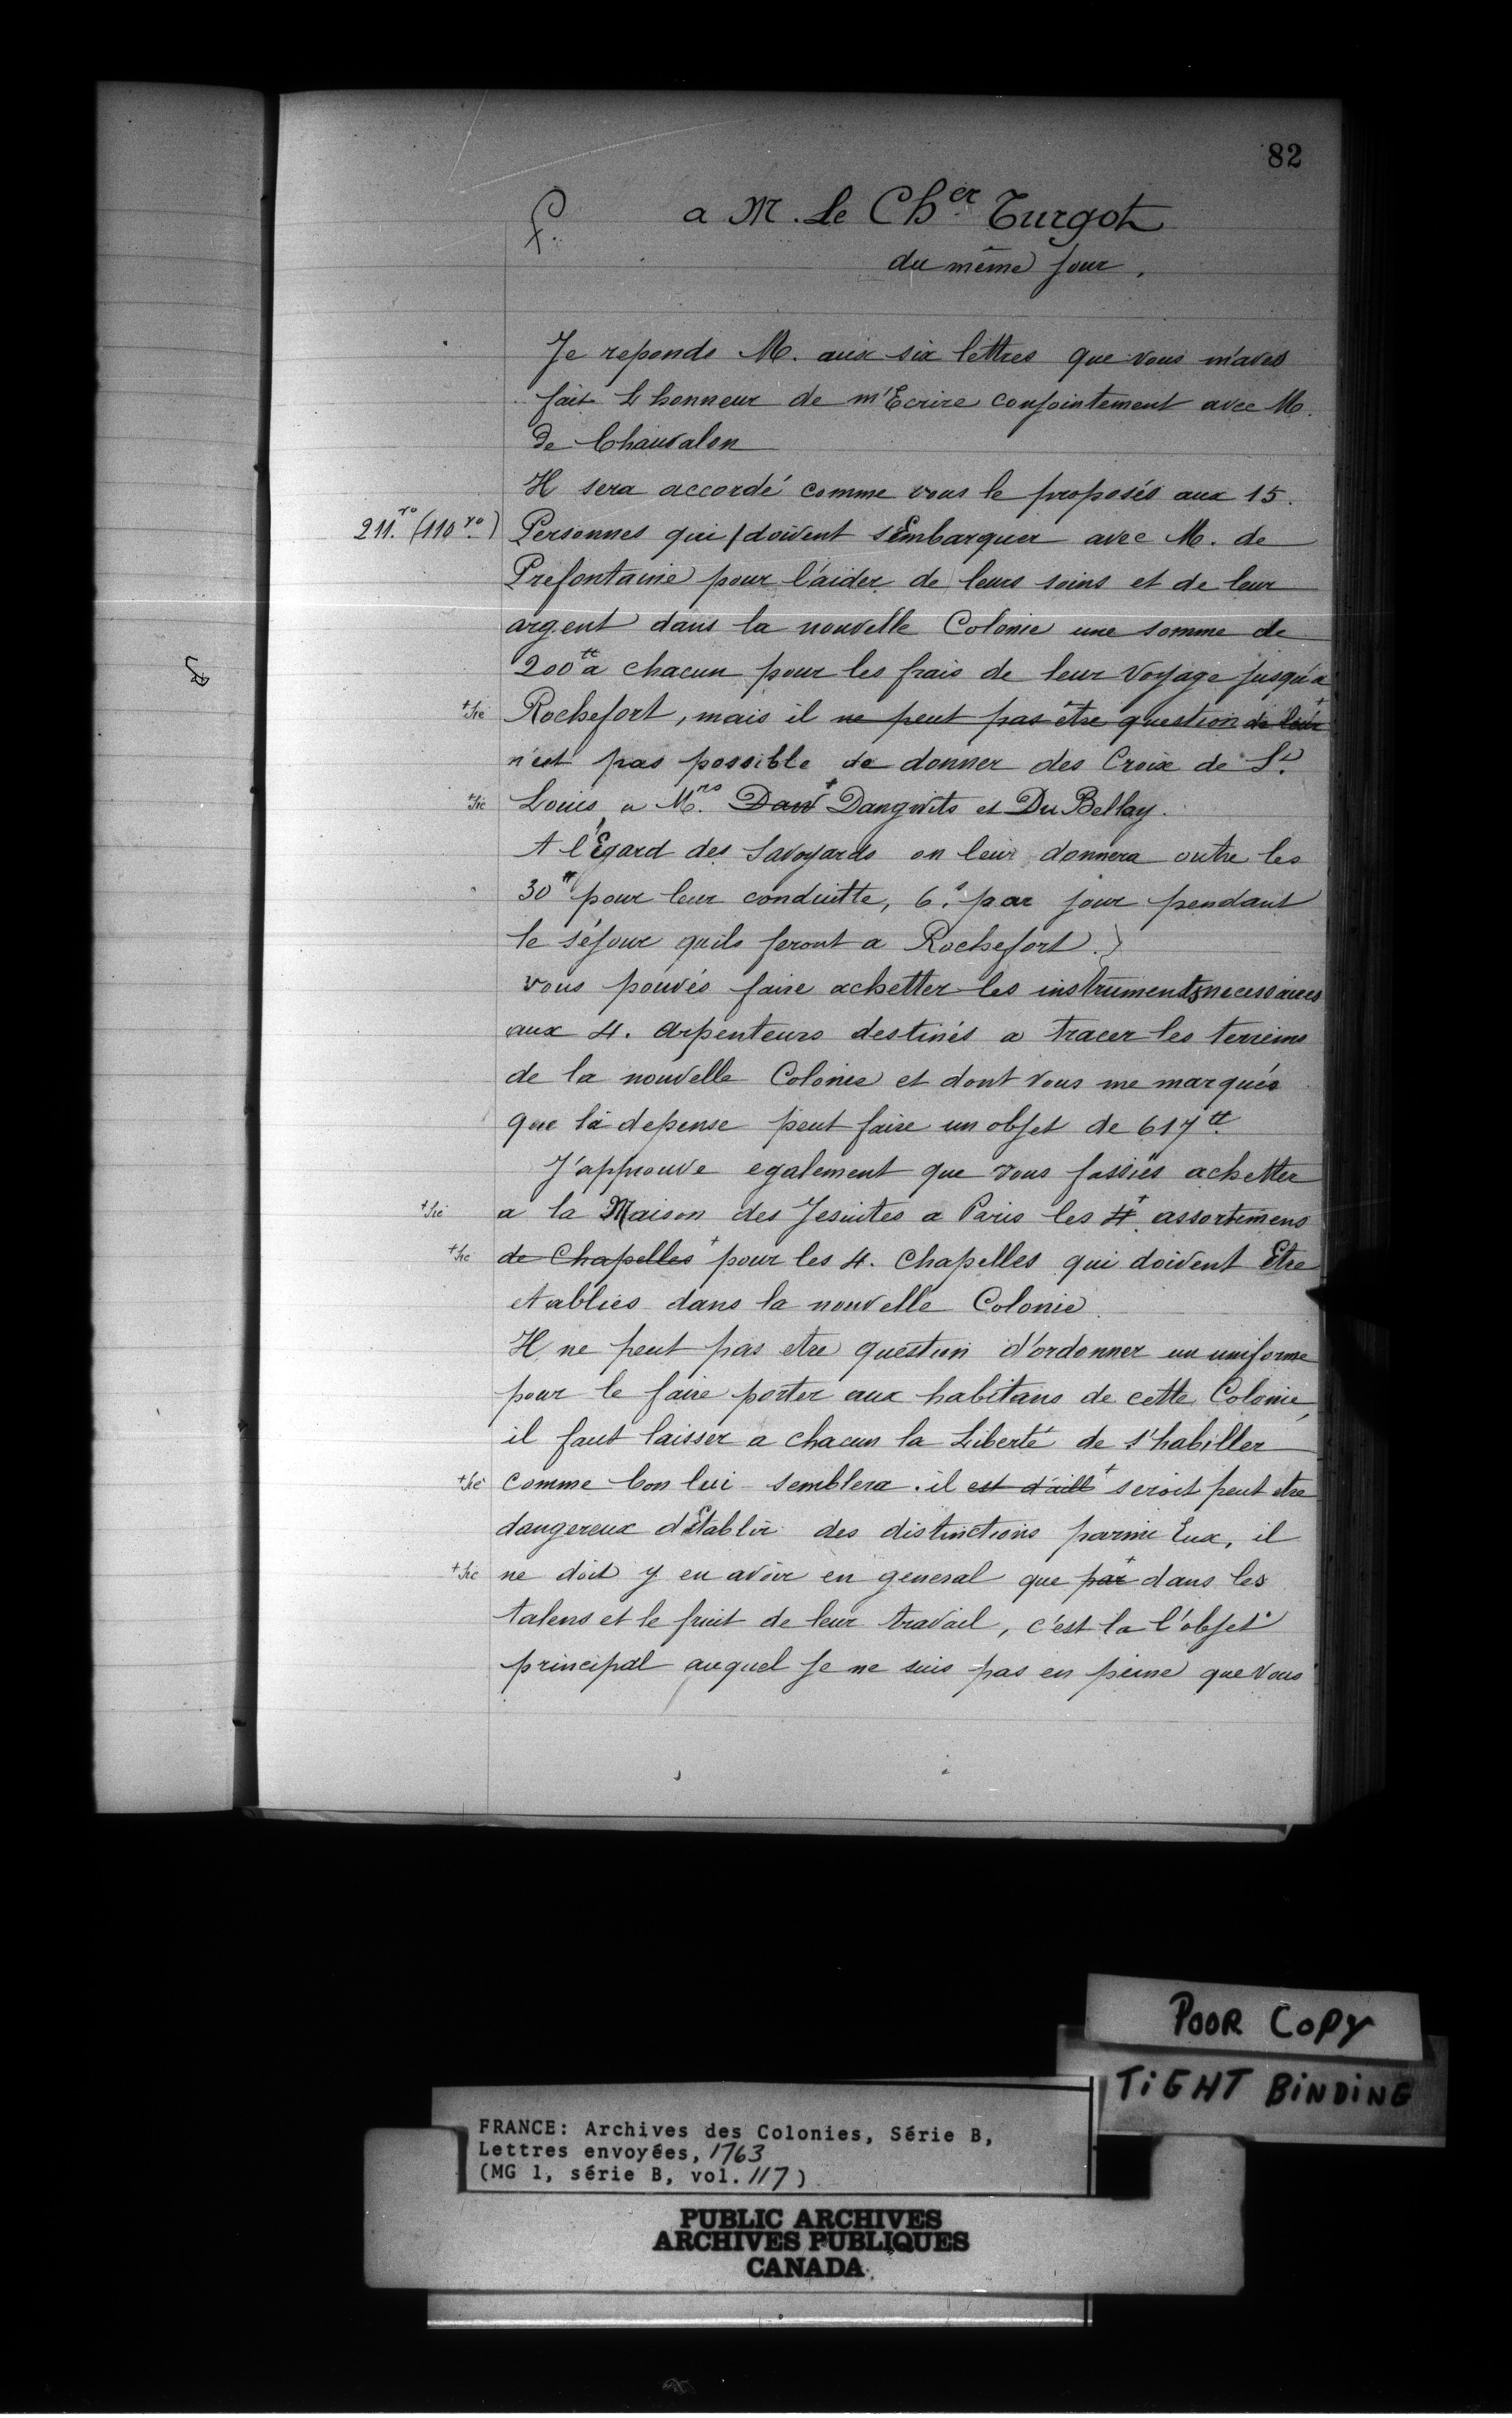 82
a M. Le Ch.er Turgot
du même jour.
Je reponds M. aux six lettres que vous m'aves
fait L'honneur de m'Ecrire conjointement avec M.
De Chauvalon
Il sera accordé comme vous le proposés aux 15.
211.ro (110 ro.) Personnes qui / doivent s'Embarquer avec M. de
Prefontaine pour l'aider de leurs soins et de leur
argent dans la nouvelle Colonie une somme de
200tt a chacun pour les frais de leur Voyage jusqu'a
+sic Rochefort, mais il ne peut pas être question de leur +
n'est pas possible de donner des Croix de St.
+sic Louis, a Mrs. Dan + Dangwits et Du Bellay.
A l'Egard des Savoyards on leur donnera outre les
30tt pour leur conduitte, 6.s par jour pendant
le séjour quils feront a Rochefort.
vous pouvés faire achetter les instruments necessaires
aux 4. arpenteurs destinés a tracer les terreins
de la nouvelle Colonie et dont vous me marqués
que la depense peut faire un objet de 617tt.
J'approuve egalement que vous fassiés achetter
+sic a la Maison des Jesuites a Paris les 4 + assortimens
+sic de Chapelles + pour les 4. Chapelles qui doivent Etre
etablies dans la nouvelle Colonie
Il ne peut pas etre question d'ordonner un uniforme
pour le faire porter aux habitans de cette Colonie,
il faut laisser a chacun la Liberté de s'habiller
+sic comme bon lui semblera. il est d'aill + seroit peut etre
dangereux d'Etablir des distinctions parmi Eux, il
+sic ne doit y en avoir en general que par + dans les
talens et le fruit de leur travail, c'est la l'objet
principal auquel je ne suis pas en peine que vous
POOR COPY
TIGHT BINDING
FRANCE: Archives des Colonies, Série B,
Lettres envoyées, 1763
(MG 1, série B, vol. 117)
PUBLIC ARCHIVES
ARCHIVES PUBLIQUES
CANADA